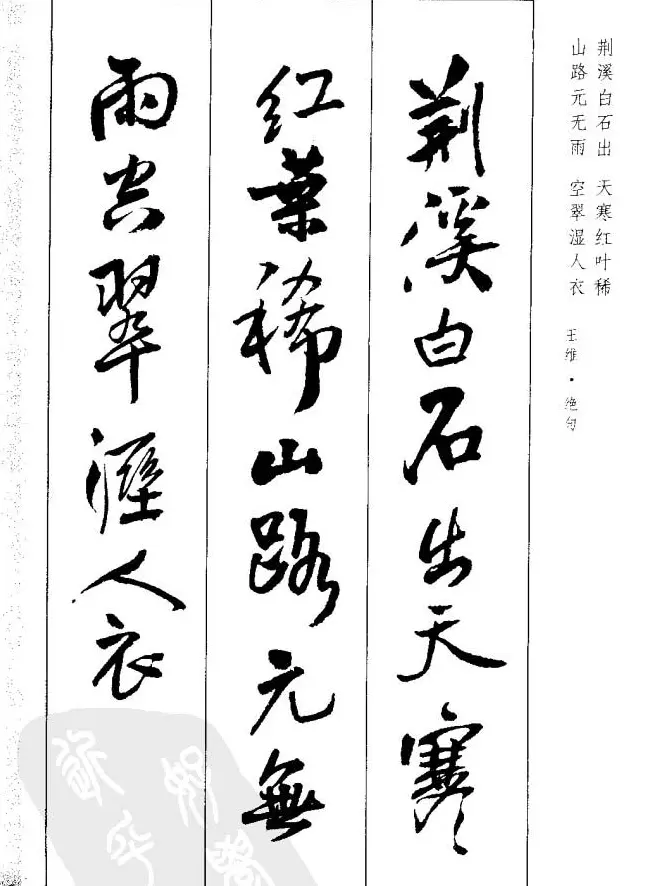 荆溪白石出 天寒红叶稀
山路元无雨 空翠湿人衣
王维·绝句
荆溪白石出天寒
红葉稀山路元無
雨空翠溼人衣